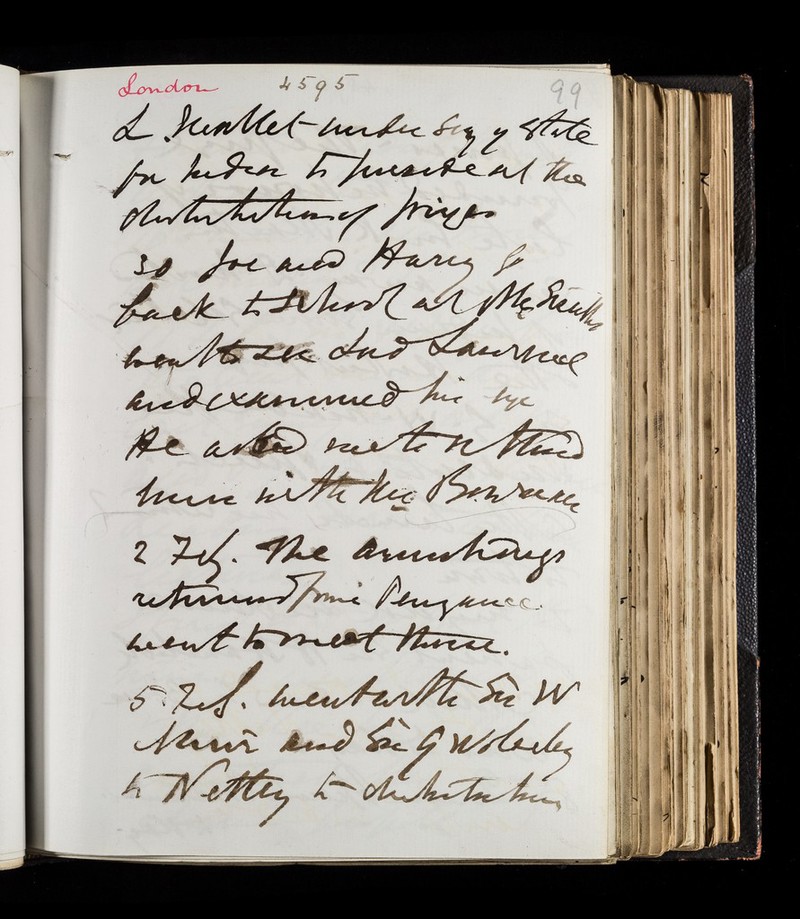 London 4595 99
under Secy of State
for India to preside at the
distribution of prizes
30 Joe and Harry go
back to School at Mr Smiths
went to see Lord Lawrence
and examined his eye
He asked me to attend
him with Mr Bowman
2 Feb. The Armstrongs
returned from Penzance
went to meet them.
5. Feb. went with Sir W
Muir and Sir G Wolseley
to Netley to distribution